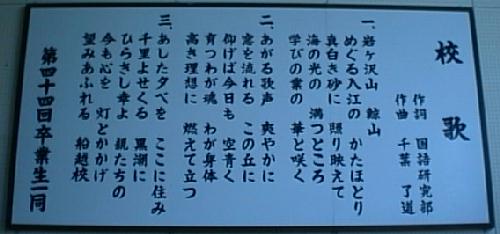 校歌
作詞 国語研究部
作曲 千葉 了道
一、岩ヶ沢山 鯨山
めぐる入江の かたほとり
真白き砂に 照り映えて
海の光の 満つところ
学びの業の 華と咲く
二、あがる歌声 爽やかに
窓を流れる この丘に
仰げば今日も 空青く
育つわが魂 わが身体
高き理想に 燃えて立つ
三、あした夕べを ここに住み
千里よせくる 黒潮に
ひらさし幸よ 親たちの
今も心を 灯とかかげ
望みあふれる 船越校
第四十四回卒業生一同